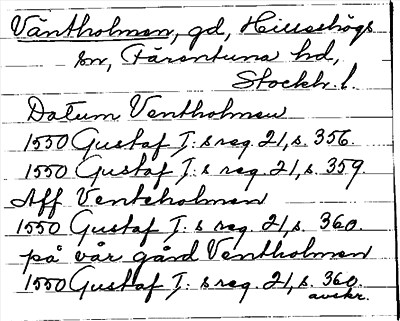 Väntholmen, gd, Hilleshögs
sn, Färentuna hd,
Stockh. l.
Datum Ventholmen
1550 Gustaf I: s reg. 21, s. 356.
1550 Gustaf I: s reg. 21, s. 359.
Aff Venteholmen
1550 Gustaf I: s reg. 21, s. 360.
på vår gård Ventholmen
1550 Gustaf I: s reg. 21, s. 360.
avskr.